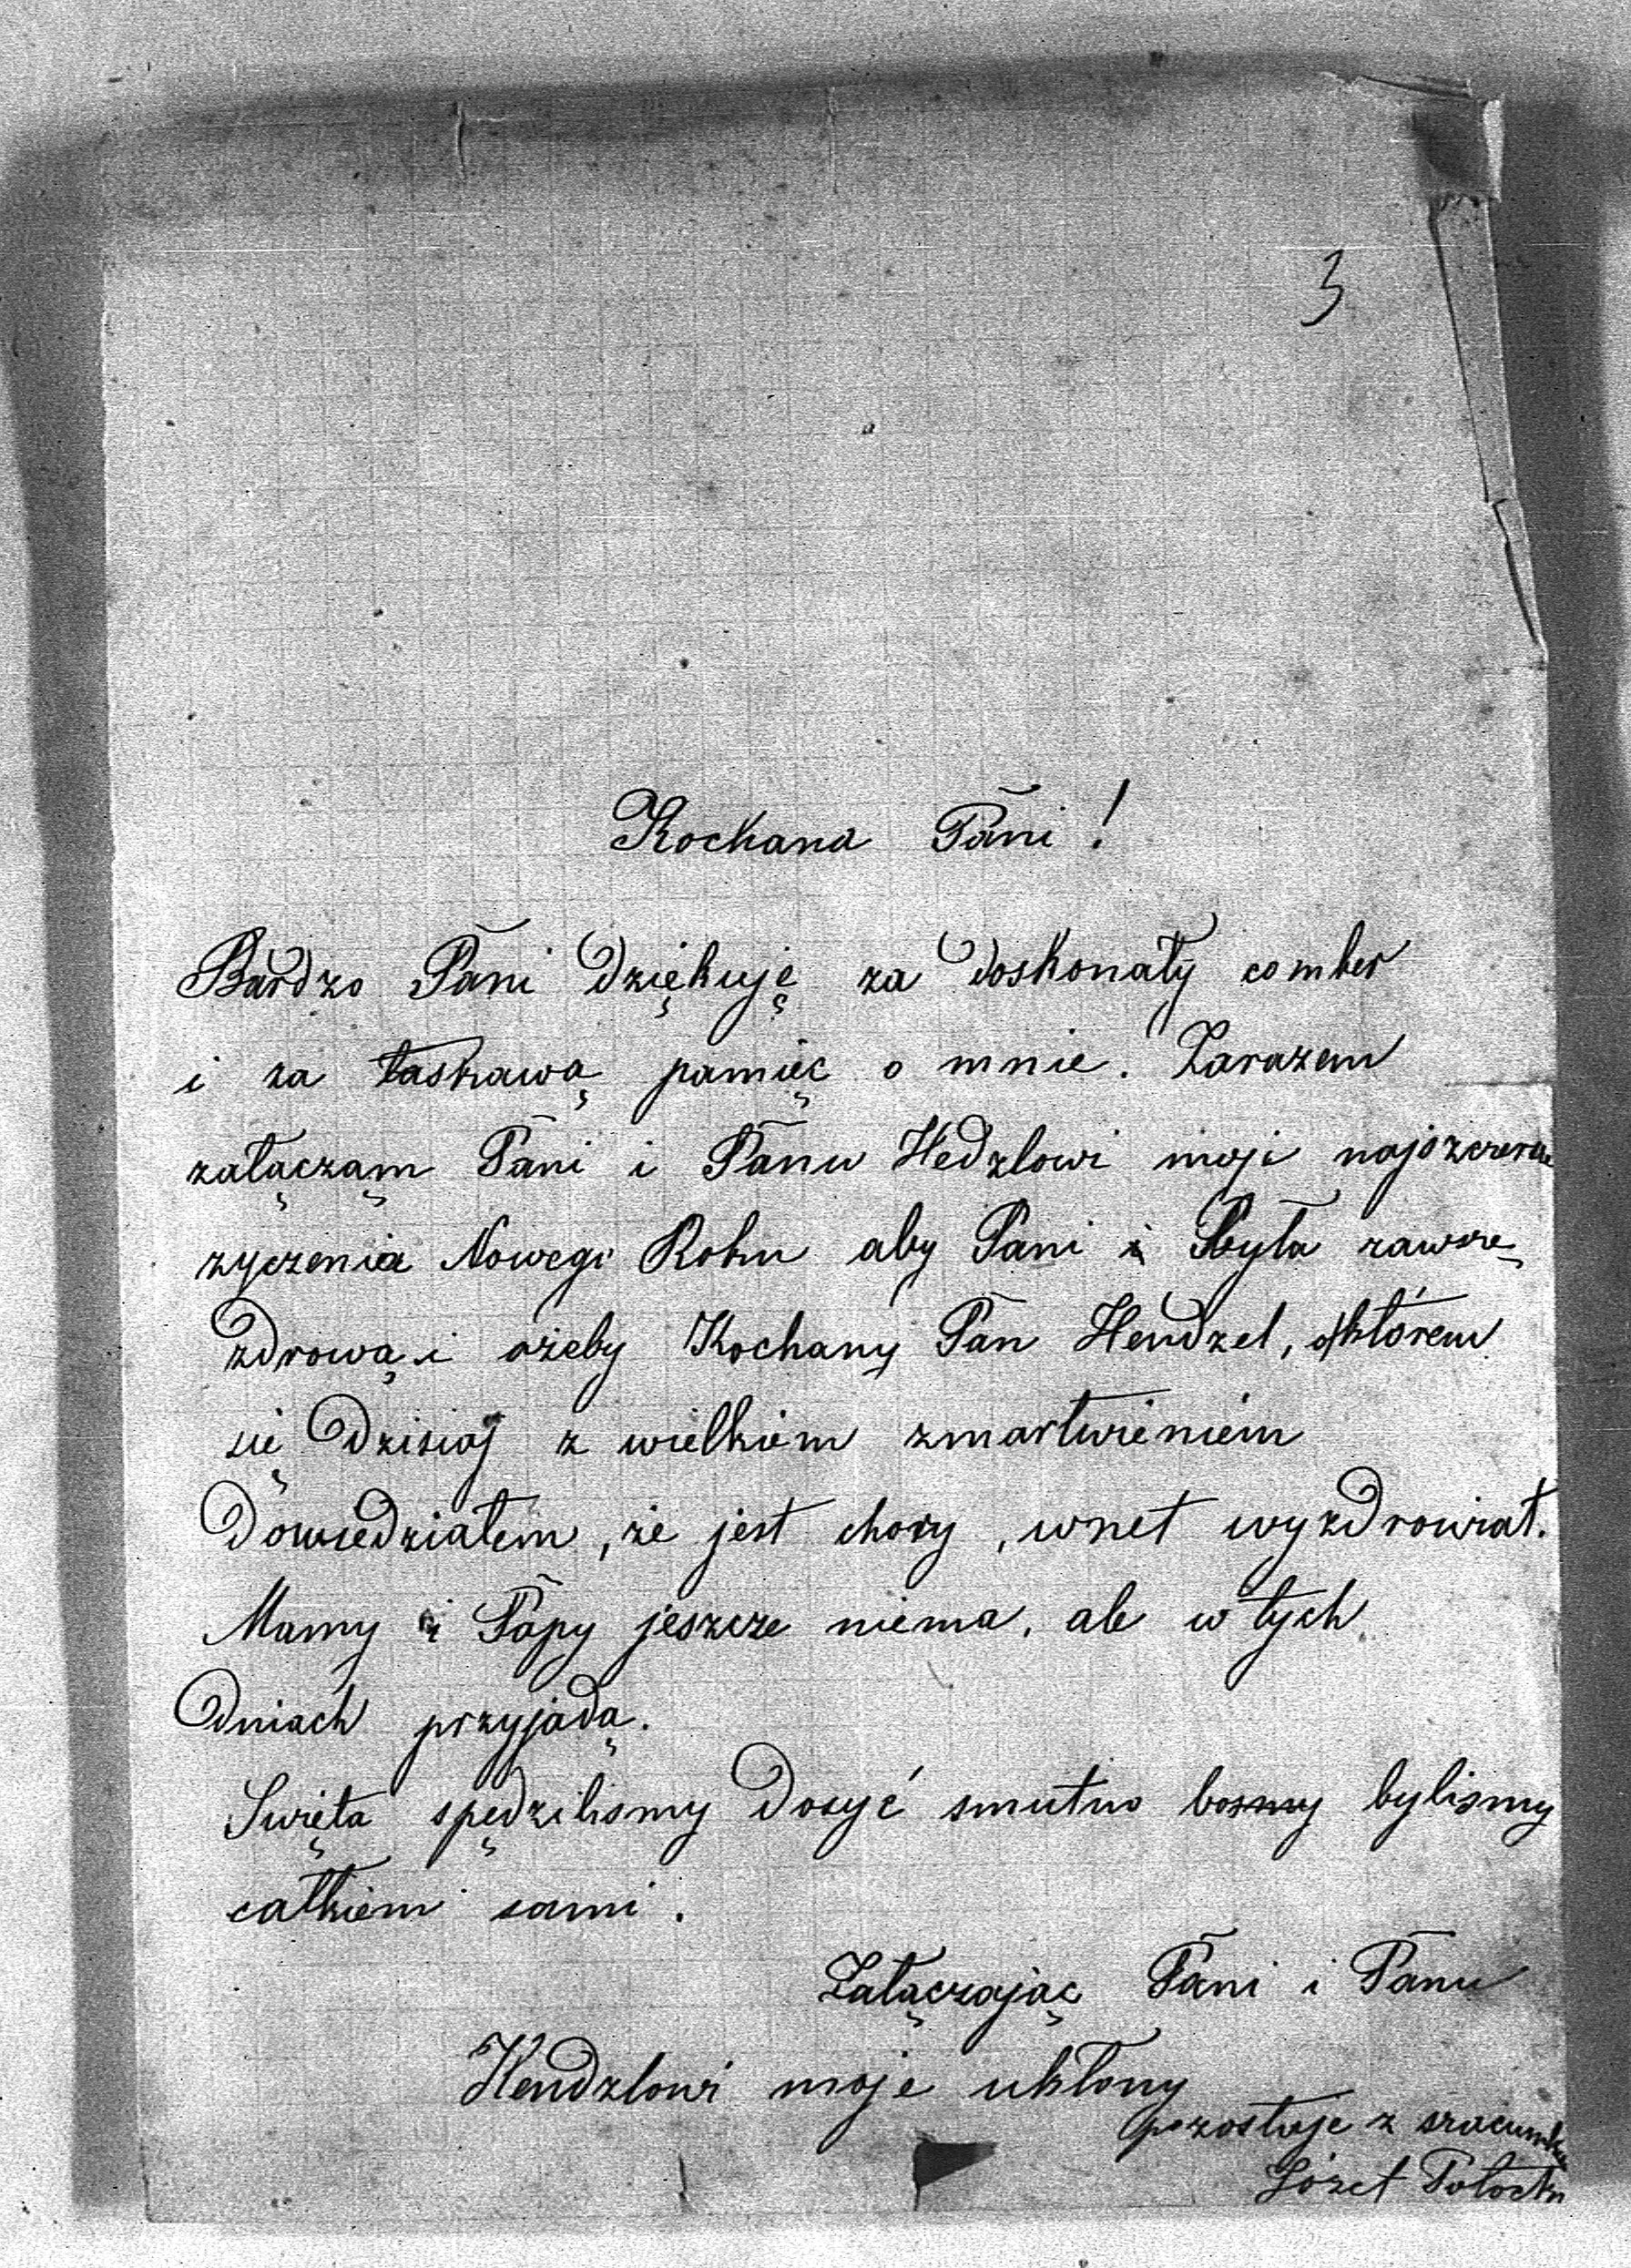 3
Kochana Pani!
Bardzo Pani dziękuję za doskonały comber
i za łaskawą pamięc o mnie. Zarazem
załącząm Pani i Panu Hedzlowi moji najszczersze
zyczenia Nowego Roku aby Pani była zawszę
zdrową i ażeby Kochany Pan Hendzel, o którem
się dzisiaj z wielkiem zmartwieniem
dowiedziałem, że jest chory, wnet wyzdrowiał.
Mamy i Papy jeszcze niema, ale w tych
dniach przyjadą.
Swięta spędzilismy dosyć smutno bosmy bylismy
całkiem sami.
Załączając Pani i Panu
Hendzlowi moje ukłony
pozostaje z szacunkiem
Józef Potocki